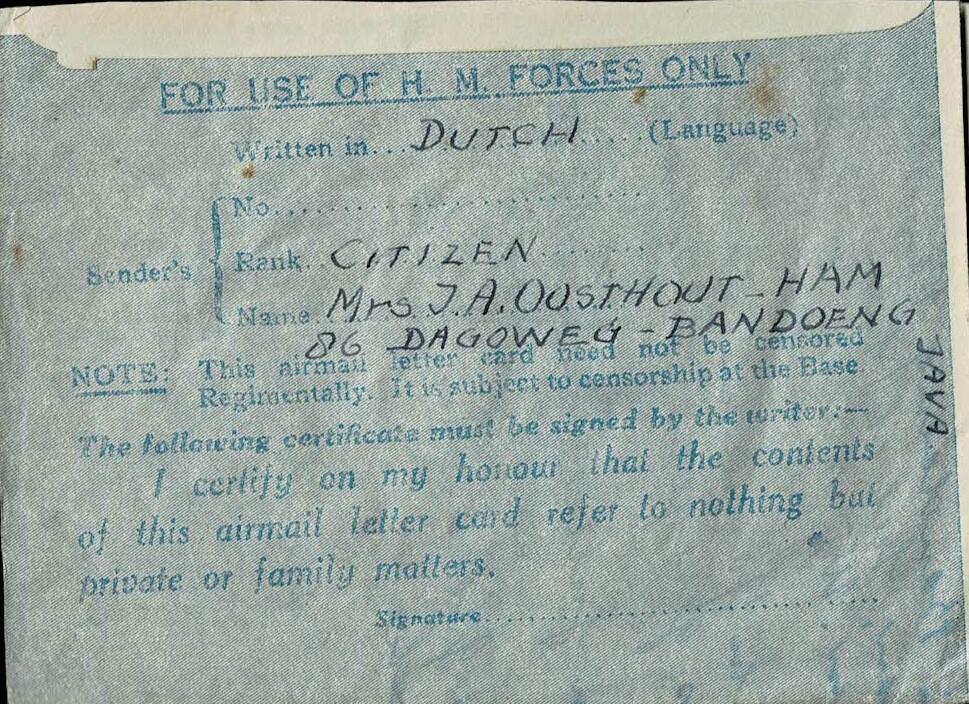 FOR USE OF H. M. FORCES ONLY
Written in... DUTCH ..... (Language)
Sender's
No..............................
Rank.. CITIZEN ..........
Name. Mrs J.A. OOSTHOUT - HAM
86 DAGOWEG - BANDOENG
JAVA
NOTE: This airmail letter card need not be censored
Regimentally. It is subject to censorship at the Base.
The following certificate must be signed by the writer:—
I certify on my honour that the contents
of this airmail letter card refer to nothing but
private or family matters.
Signature..............................